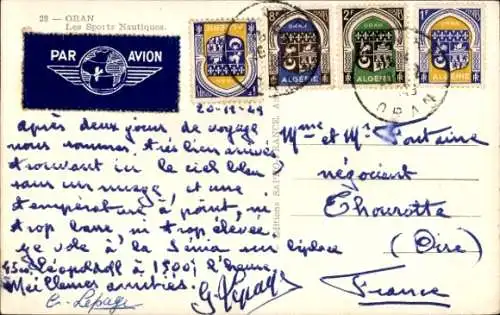 28 — ORAN
Les Sports Nautiques.
PAR AVION
ALGÉRIE
ALGÉRIE
ALGÉRIE
ORAN
20-12-49
après deux jours de voyage
nous sommes très bien arrivés
trouvant ici le ciel bleu
sans un nuage et une
température à point, ni
trop basse ni trop élevée.
je vole à la Sénia sur
à 1500m
Meilleures amitiés.
G. Lepage
G. Lepage
Mme et Mr Fontaine
négociant
Thourotte
(Oise)
France